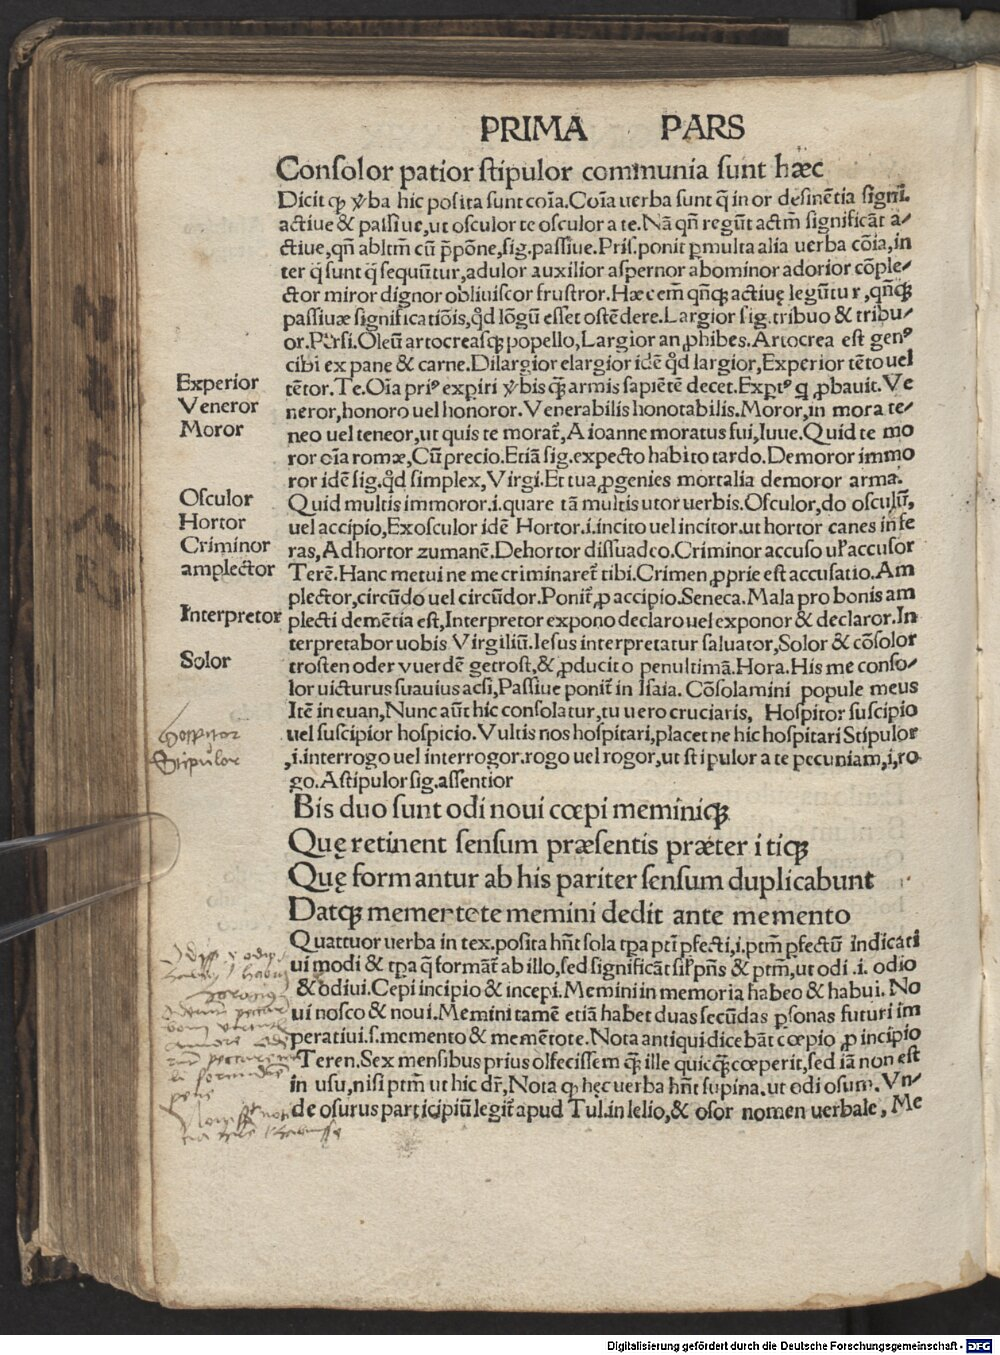 PRIMA PARS
Conſolor patior ſtipulor communia ſunt hæc
Dicit ꝙ ꝟba hic poſita ſunt coĩa. Coĩa uerba ſunt q̃ in or deſinẽtia ſigni.
actiue & paſſiue, ut oſculor te oſculor a te. Nã qñ regũt actm̃ ſignificãt a⸗
ctiue, qñ abltm̃ cũ p̃põne, ſig. paſſiue. Priſ. ponit ꝑmulta alia uerba cõia, in
ter q̃ ſunt q̃ ſequũtur, adulor auxilior aſpernor abominor adorior cõple⸗
ctor miror dignor obliuiſcor fruſtror. Hæc em̃ qñꝗ actiuę legũtur, qñꝗ
paſſiuæ ſignificatiõis, qd̃ lõgũ eſſet oſtẽdere. Largior ſig. tribuo & tribu⸗
or. Perſi. Oleũ artocreaſꝗ popello, Largior an ꝓhibes. Artocrea eſt genꝰ
cibi ex pane & carne. Dilargior elargior idẽ qd̃ largior, Experior tẽto uel
Experior
tẽtor. Te. Oĩa priꝰ expiri ꝟbis ꝗ̃ armis ſapiẽtẽ decet. Exptꝰ ꝗ ꝓbauit. Ve
Veneror
neror, honoro uel honoror. Venerabilis honotabilis. Moror, in mora te⸗
Moror
neo uel teneor, ut quis te morat̃, A ioanne moratus fui, Iuue. Quid te mo
ror oĩa romæ, Cũ precio. Etiã ſig. expecto habito tardo. Demoror immo
ror idẽ ſig. qd̃ ſimplex, Virgi. Et tua ꝓgenies mortalia demoror arma.
Oſculor
Quid multis immoror .i. quare tã multis utor uerbis. Oſculor, do oſculũ,
Hortor
uel accipio, Exoſculor idẽ Hortor .i. incito uel incitor. ut hortor canes in fe
Criminor
ras, Ad hortor zumanẽ. Dehortor diſſuadeo. Criminor accuſo uł accuſor
amplector
Terẽ. Hanc metui ne me criminaret̃ tibi. Crimen ꝓprie eſt accuſatio. Am
plector, circũdo uel circũdor. Ponit̃ ꝓ accipio. Seneca. Mala pro bonis am
Interpretor
plecti demẽtia eſt, Interpretor expono declaro uel exponor & declaror. In
terpretabor uobis Virgiliũ. Ieſus interpretatur ſaluator, Solor & cõſolor
Solor
troſten oder vuerdẽ getroſt, & ꝓducit o penultimã. Hora. His me conſo⸗
lor uicturus ſuauius acſi, Paſſiue ponit̃ in Iſaia. Cõſolamini popule meus
Itẽ in euan, Nunc aũt hic conſolatur, tu uero cruciaris, Hoſpitor ſuſcipio
Hospitor
uel ſuſcipior hoſpicio. Vultis nos hoſpitari, placet ne hic hoſpitari Stipulor
Stipulor
,i. interrogo uel interrogor. rogo uel rogor, ut ſtipulor a te pecuniam, i, ro⸗
go. Aſtipulor ſig. aſſentior
Bis duo ſunt odi noui cœpi meminiꝗ
Quę retinent ſenſum præſentis præter i tiꝗ
Quę formantur ab his pariter ſenſum duplicabunt
Datꝗ mementote memini dedit ante memento
Quattuor uerba in tex. poſita hñt ſola tꝑa pti ꝑfecti, i. ptm̃ ꝑfectũ indicati
ui modi & tꝑa q̃ formãt̃ ab illo, ſed ſignificãt ſiľ pñs & ptm̃, ut odi .i. odio
& odiui. Cepi incipio & incepi. Memini in memoria habeo & habui. No
ui noſco & noui. Memini tamẽ etiã habet duas ſecũdas ꝑſonas futuri im
peratiui .ſ. memento & memẽtote. Nota antiqui dicebãt cœpio ꝓ incipio
Teren. Sex menſibus prius olfeciſſem ꝗ̃ ille quicꝗ̃ cœperit, ſed iã non eſt
in uſu, niſi ptm̃ ut hic dr̃, Nota ꝙ hęc uerba hñt ſupina. ut odi oſum. Vn⸗
de oſurus participiũ legit̃ apud Tul. in lelio, & oſor nomen uerbale, Me
Digitalisierung gefördert durch die Deutsche Forschungsgemeinschaft - DFG